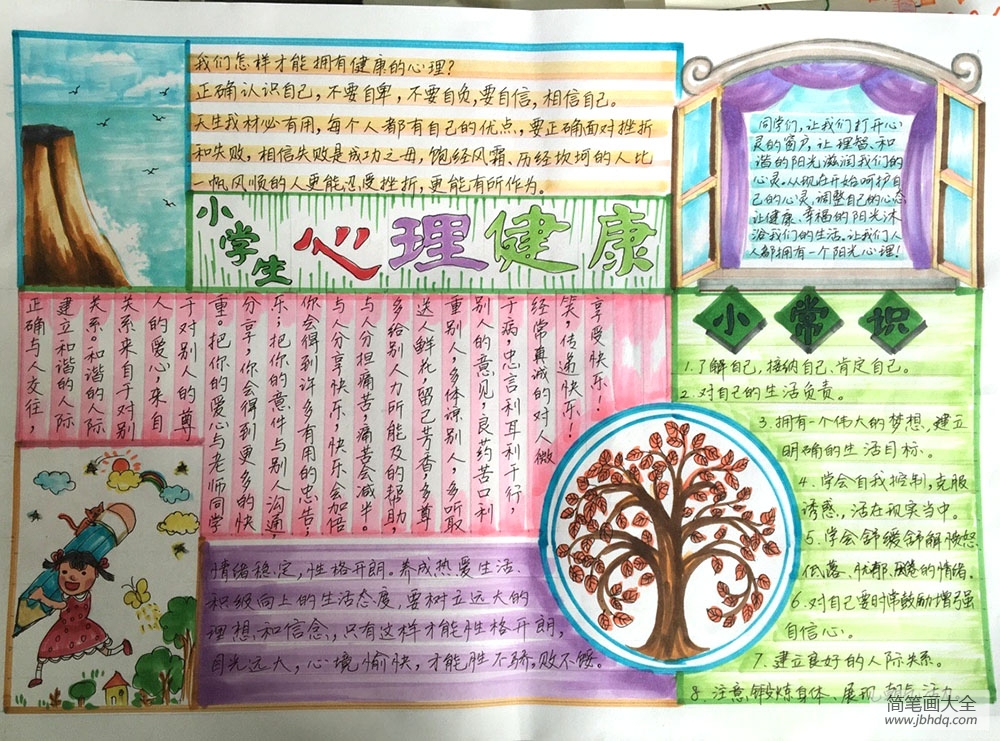 我们怎样才能拥有健康的心理?
正确认识自己,不要自卑,不要自负,要自信,相信自己。
天生我材必有用,每个人都有自己的优点,要正确面对挫折
和失败,相信失败是成功之母,饱经风霜、历经坎坷的人比
一帆风顺的人更能忍受挫折,更能有所作为。
小学生心理健康
同学们,让我们打开心
灵的窗户,让理智、和
谐的阳光滋润我们的
心灵。从现在开始呵护自
己的心灵,调整自己的心态
让健康、幸福的阳光沐
浴我们的生活。让我们人
人都拥有一个阳光心理!
正确与人交往,
建立和谐的人际
关系。和谐的人际
关系来自于对别
人的爱心,来自
于对别人的尊
重。把你的爱心与老师同学
分享,你会得到更多的快
乐;把你的意件与别人沟通,
你会得到许多有用的忠告;
与人分享快乐,快乐会加倍
与人分担痛苦,痛苦会减半。
多给别人力所能及的帮助
送人鲜花,留己芳香,多尊
重别人,多体谅别人,多听取
别人的意见,良药苦口利
于病,忠言利耳利于行,
经常真诚的对人微
笑,传递快乐!
享受快乐!
小常识
1.了解自己,接纳自己,肯定自己。
2.对自己的生活负责。
3.拥有一个伟大的梦想,建立
明确的生活目标。
4.学会自我控制,克服
诱惑,活在现实当中。
5.学会舒缓舒解愤怒
低落、忧郁、厌卷的情绪。
6.对自己要时常鼓励增强
自信心。
7.建立良好的人际关系。
8.注意锻炼身体、展现朝气活力
情绪稳定,性格开朗。养成热爱生活、
积级向上的生活态度,要树立远大的
理想和信念,只有这样才能性格开朗,
目光远大,心境愉快,才能胜不骄,败不馁。
简笔画大全
www.jbhdq.com